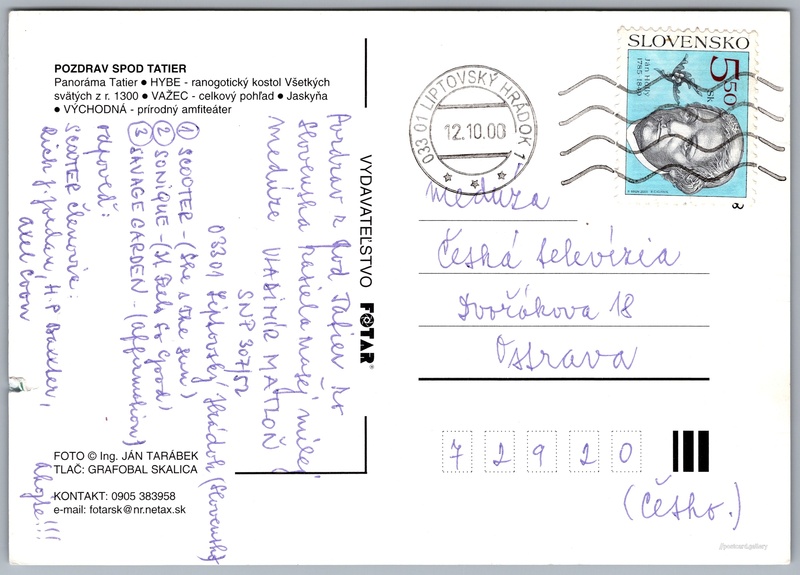 POZDRAV SPOD TATIER
Panoráma Tatier ● HYBE - ranogotický kostol Všetkých
svätých z r. 1300 ● VAŽEC - celkový pohľad ● Jaskyňa
● VÝCHODNÁ - prírodný amfiteáter
Pozdrav z pod Tatier zo
Slovenska zasiela našej milej
Medúze VLADIMÍR
SNP 307/52
03301 Liptovský Hrádok (Slovensko)
① SCOOTER - (She's the sun)
② SONIQUE - (It Feels So Good)
③ SAVAGE GARDEN - (Affirmation)
odpoveď:
SCOOTER členovia:
Rick J. Jordan, H.P. Baxxter,
Axel Coon
Ahojte!!!
FOTO © Ing. JÁN TARÁBEK
TLAČ: GRAFOBAL SKALICA
KONTAKT: 0905 383958
e-mail: fotarsk@nr.netax.sk
VYDAVATEĽSTVO FOTAR®
033 01 LIPTOVSKÝ HRÁDOK 1
12.10.00
SLOVENSKO
5 50 Sk
Ján Hollý
1785-1849
Meduza
Česká televízia
Dvořákova 18
Ostrava
72920
(Česko.)